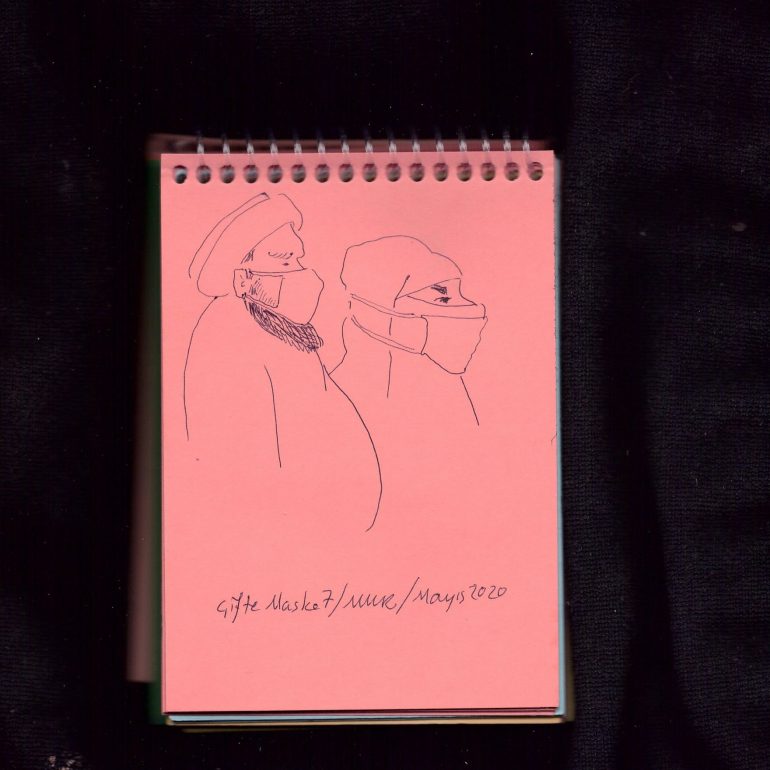 Çifte Maske 7/MUR/Mayıs 2020